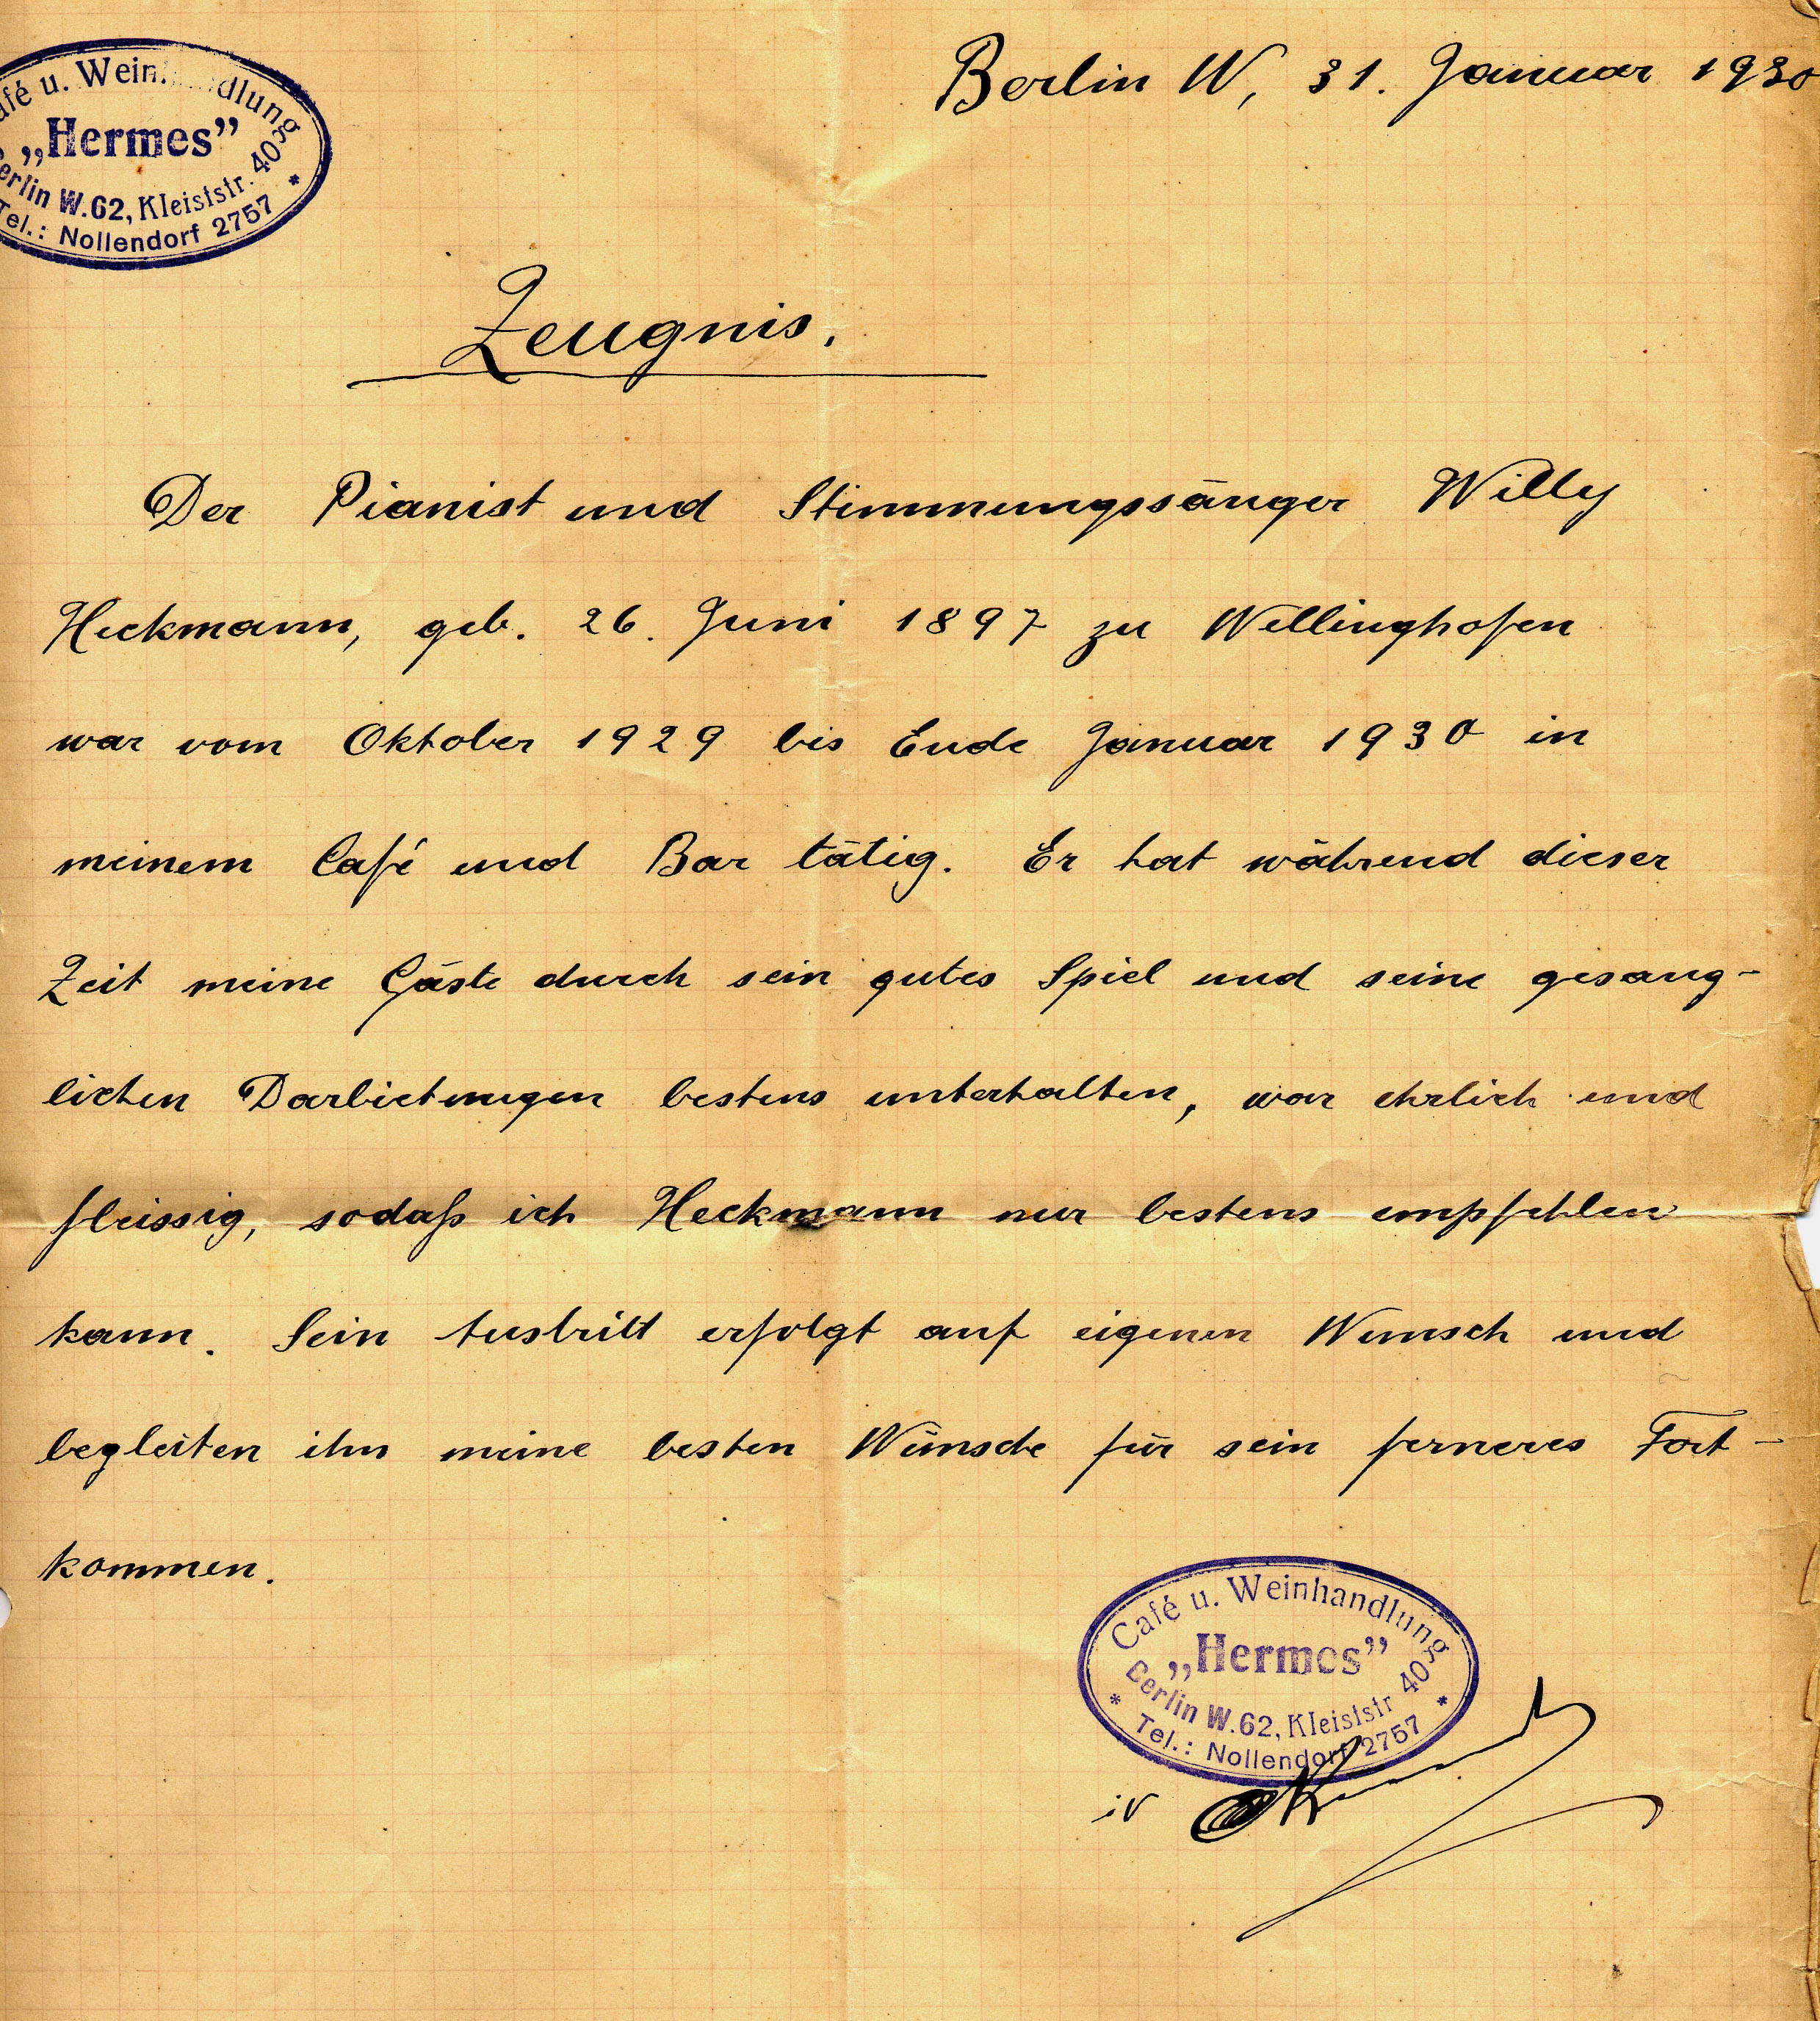 Café u. Weinhandlung
„Hermes”
Berlin W.62, Kleiststr. 40
Tel.: Nollendorf 2757 *
Berlin W, 31. Januar 1930
Zeugnis.
Der Pianist und Stimmungssänger Willy
Heckmann, geb. 26. Juni 1897 zu Wellinghofen
war vom Oktober 1929 bis Ende Januar 1930 in
meinem Café und Bar tätig. Er hat während dieser
Zeit meine Gäste durch sein gutes Spiel und seine gesang-
lichen Darbietungen bestens unterhalten, war ehrlich und
fleissig, sodaß ich Heckmann nur bestens empfehlen
kann. Sein Austritt erfolgt auf eigenen Wunsch und
begleiten ihn meine besten Wünsche für sein ferneres Fort-
kommen.
Café u. Weinhandlung
„Hermes”
Berlin W.62, Kleiststr 40
* Tel.: Nollendorf 2757 *
iv